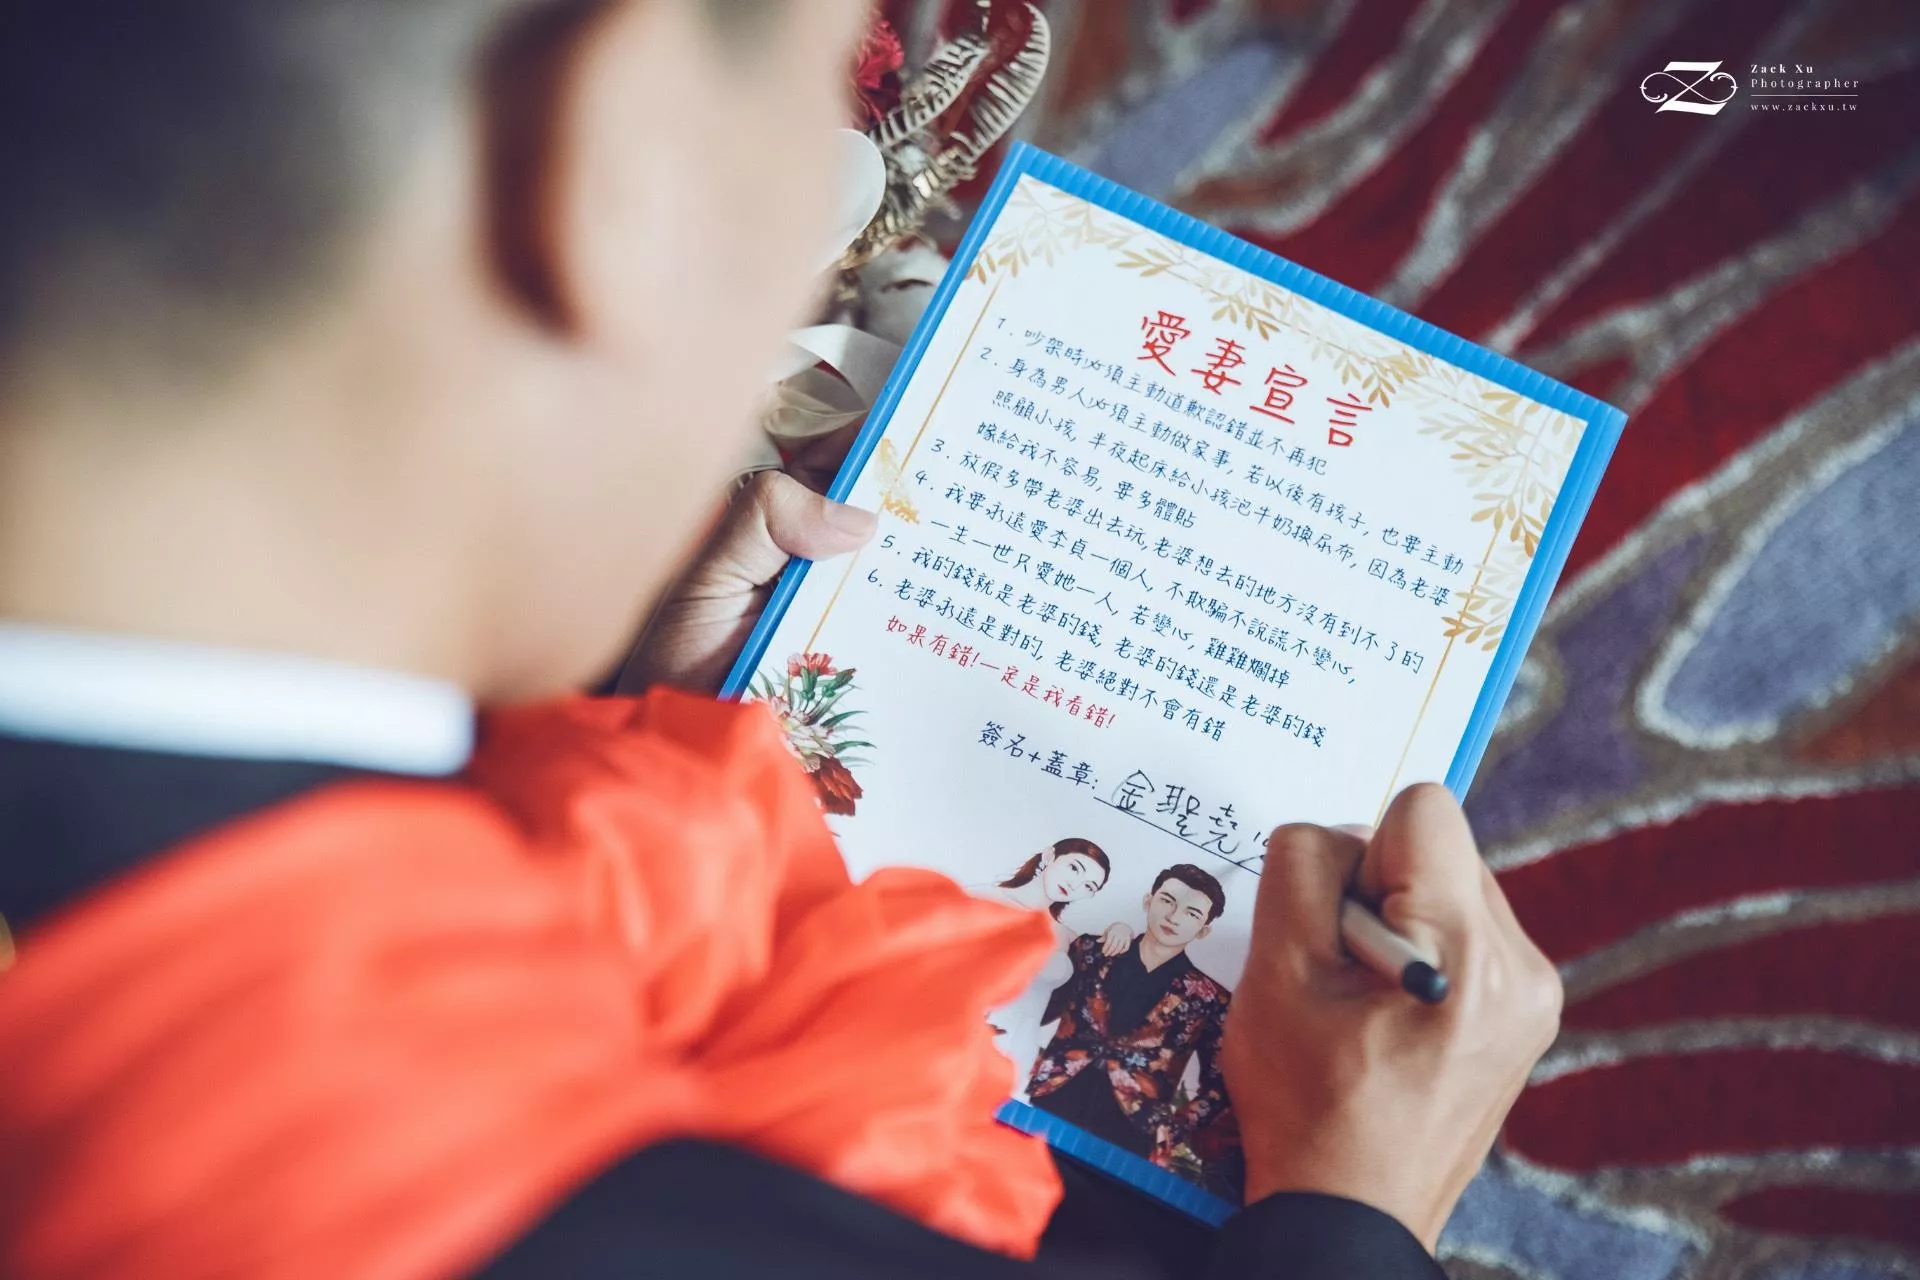 Zack Xu
Photographer
www.zackxu.tw
愛妻宣言
1. 吵架時必須主動道歉認錯並不再犯
2. 身為男人必須主動做家事, 若以後有孩子, 也要主動
照顧小孩, 半夜起床給小孩泡牛奶換尿布, 因為老婆
嫁給我不容易, 要多體貼
3. 放假多帶老婆出去玩, 老婆想去的地方沒有到不了的
4. 我要永遠愛李貞一個人, 不欺騙不說謊不變心,
一生一世只愛她一人, 若變心, 雞雞爛掉
5. 我的錢就是老婆的錢, 老婆的錢還是老婆的錢
6. 老婆永遠是對的, 老婆絕對不會有錯
如果有錯!一定是我看錯!
簽名+蓋章: 金聖堯